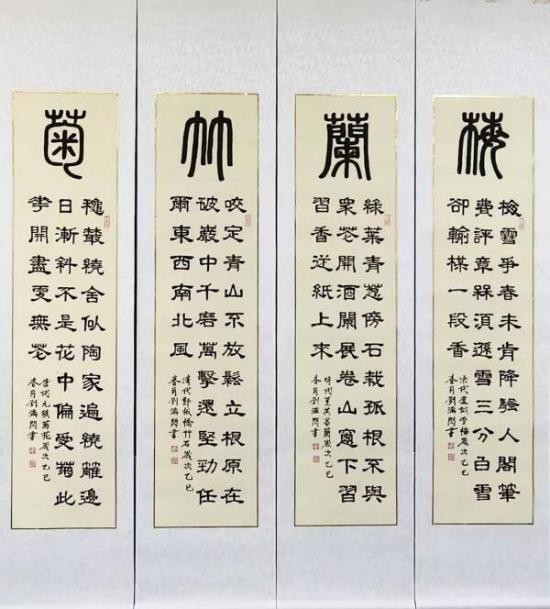 梅
梅雪爭春未肯降騷人閣筆
費評章槑須遜雪三分白雪
卻輸楳一段香
宋代盧鉞雪梅歲次乙巳
春月劉滿閃書
蘭
綠葉青葱傍石栽孤根不與
衆芲開酒闌展卷山窗下習
習香從紙上來
明代董其昌蘭歲次乙巳
春月劉滿閃書
竹
咬定青山不放鬆立根原在
破巖中千磨萬擊還堅勁任
爾東西南北風
清代鄭板橋竹石歲次乙巳
春月劉滿閃書
菊
穐叢繞舍似陶家遍繞籬邊
日漸斜不是花中偏愛菊此
華開盡更無芲
唐代元稹菊花歲次乙巳
春月劉滿閃書